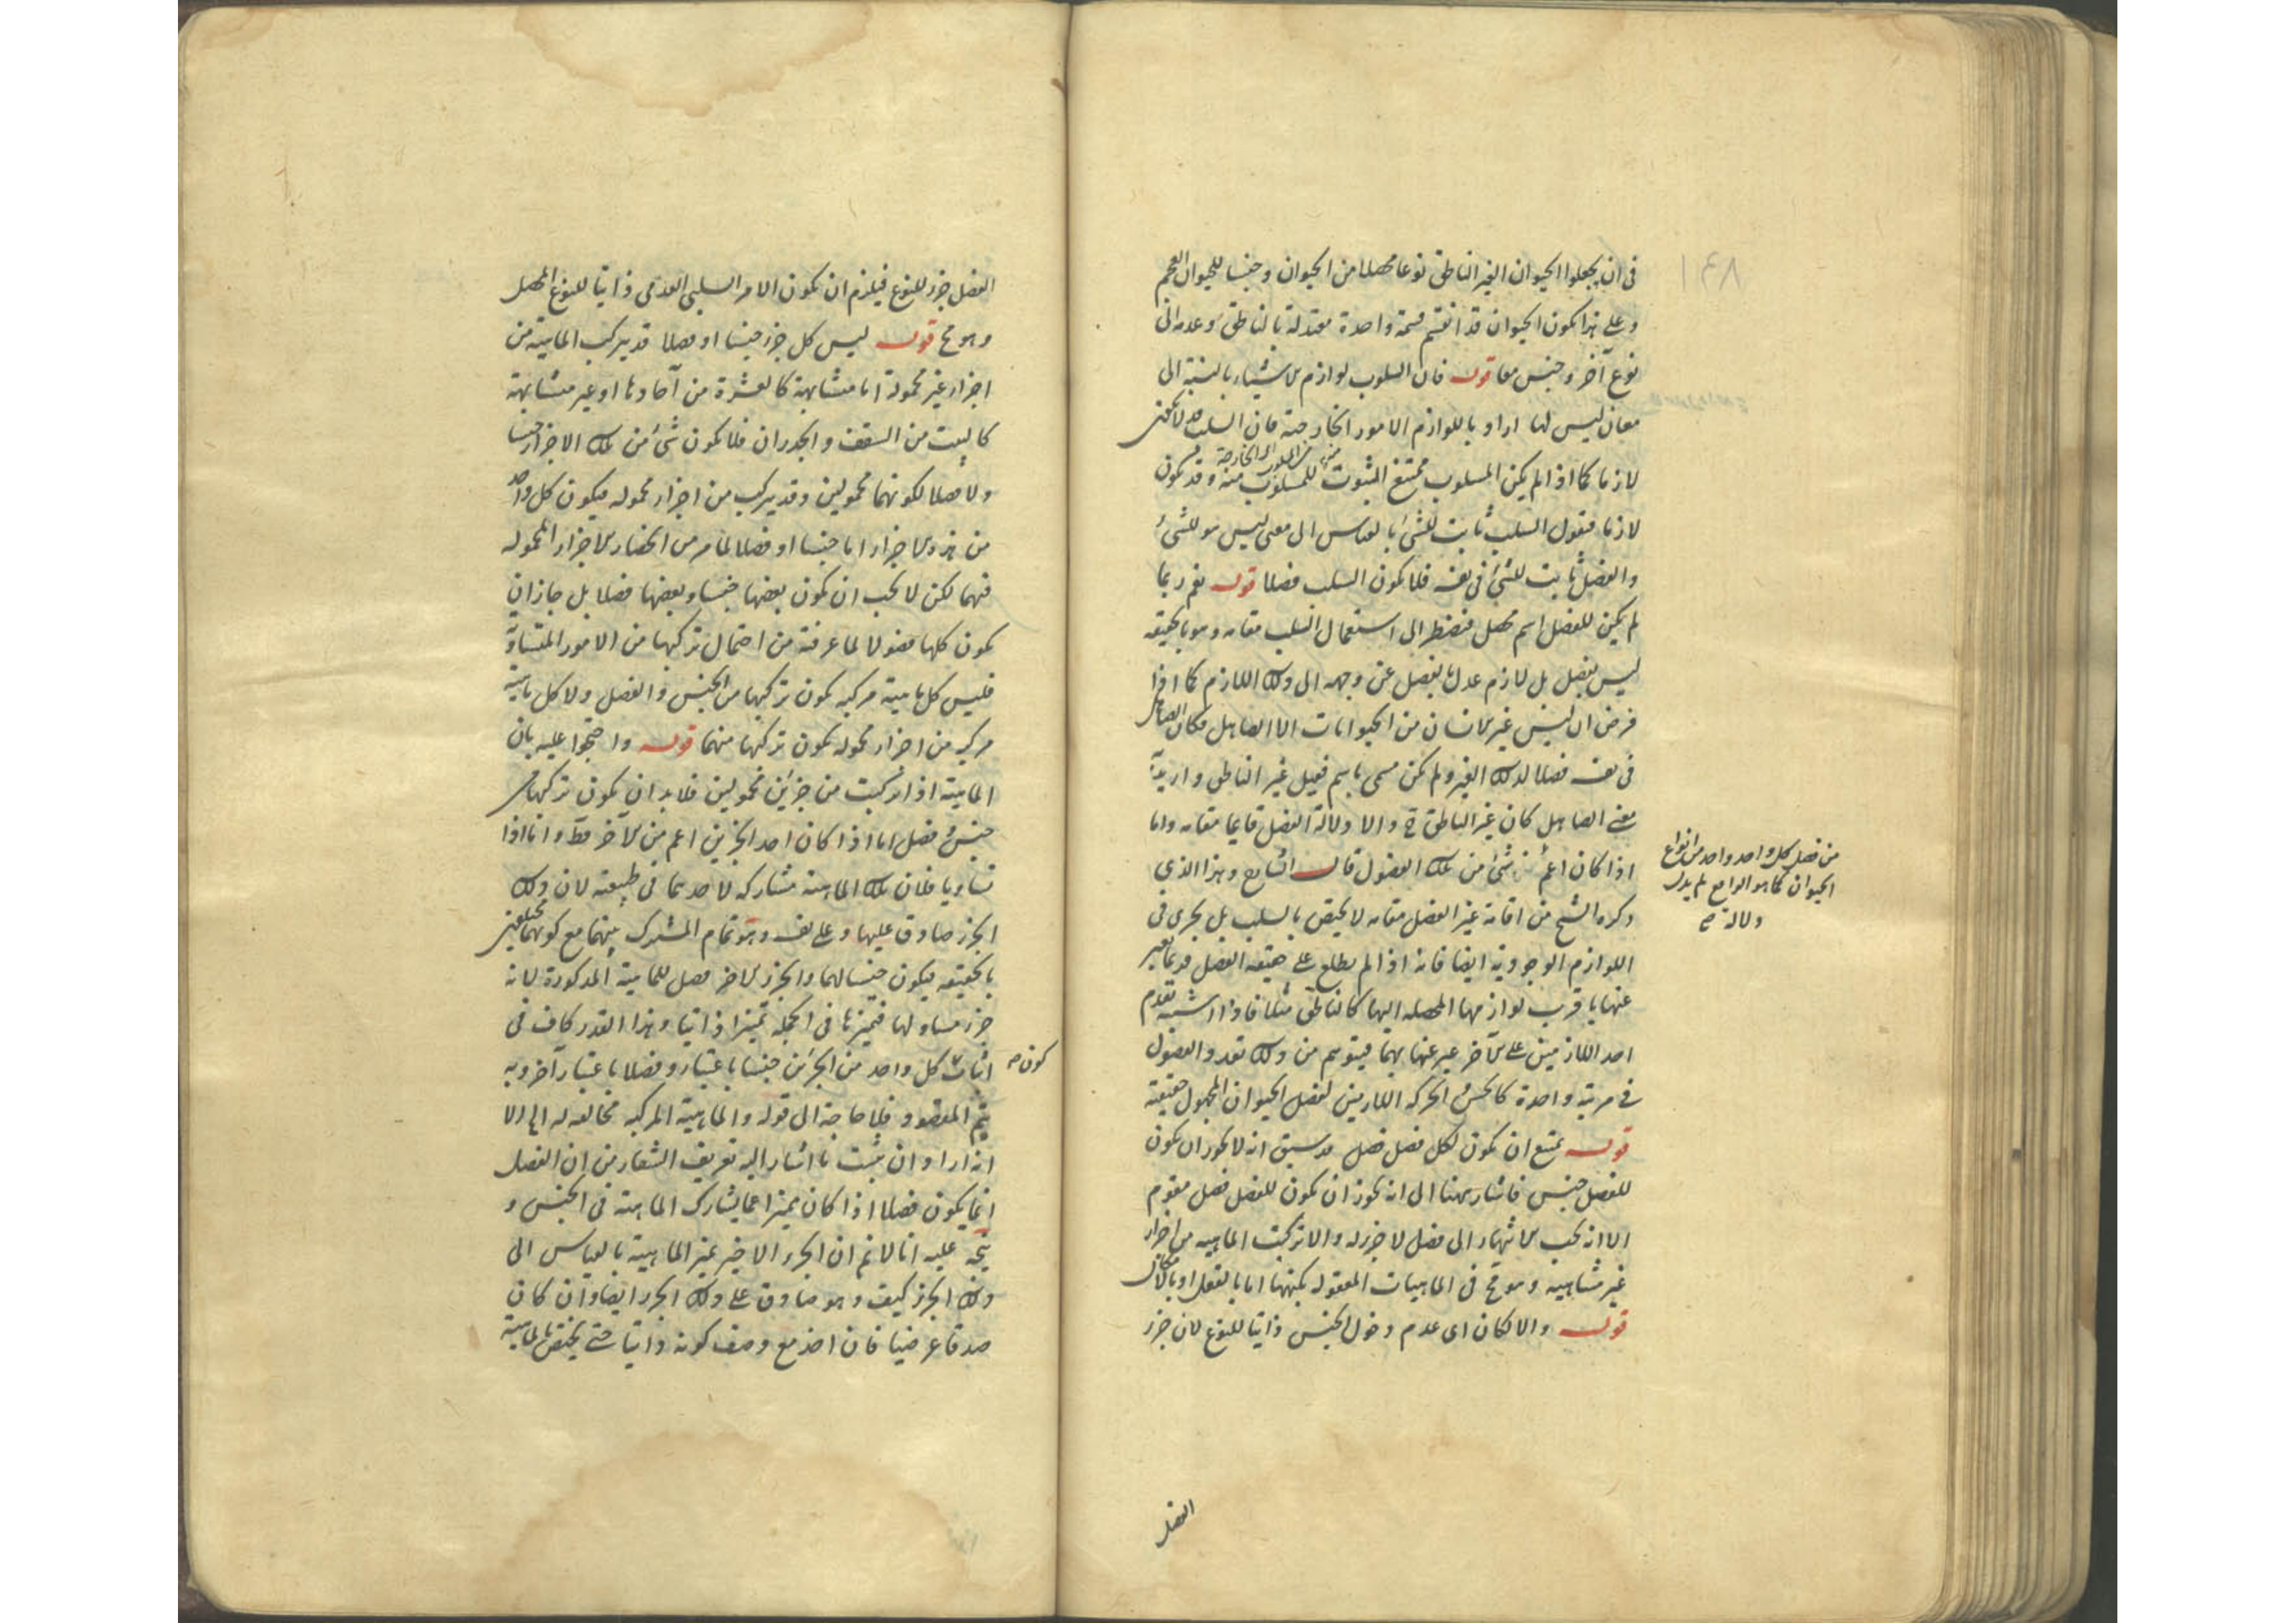 فى ان يجعلوا الحيوان الغير الناطق نوعا محصلا من الحيوان وجنسا للحيوان العجم
وعلى هذا يكون الحيوان قد انقسم قسمة واحدة معتدلة بالناطق وعدمه الى
نوع آخر وجنس معا قوله فان السلوب لوازم للاشياء بالنسبة الى
معان ليس لها اراد باللوازم الامور الخارجة فان السلب قد لا يكون
لازما كما اذا لم يكن المسلوب ممتنع الثبوت للمسلوب منه وقد يكون
لازما فنقول السلب ثابت للشئ بالقياس الى معنى ليس هو للشئ
والفصل ثابت للشئ فى نفسه فلا يكون السلب فصلا قوله نعم ربما
لم يكن للفصل اسم محصل فنضطر الى استعمال السلب مقامه وهو بالحقيقه
ليس بفصل بل لازم عدل بالفصل عن وجهه الى ذلك اللازم كما اذا
فرض ان ليس غير الانسان من الحيوانات الا الصاهل فكان الصاهل
فى نفسه فصلا لذلك الغير ولم يكن مسمى باسم فقيل غير الناطق واريد به
معنى الصاهل كان غير الناطق ح دالا دلالة الفصل قايما مقامه واما
اذا كان اعم من شئ من تلك الفصول قال الشارح وهذا الذى
من فصل كل واحد واحد من انواع
الحيوان كما هو الواقع لم يدل
دلالة صح
ذكره الشيخ من اقامة غير الفصل مقامه لا يختص بالسلب بل يجرى فى
اللوازم الوجودية ايضا فانه اذا لم يطلع على حقيقه الفصل فربما يعبر
عنها باقرب لوازمها المحصله اليها كالناطق مثلا فاذا اشتبه تقدم
احد اللازمين على الآخر عبر عنها بهما فيتوهم من ذلك تعدد الفصول
فى مرتبة واحدة كالحس والحركه اللازمين لفصل الحيوان المجهول حقيقته
قوله يمتنع ان يكون لكل فصل فصل قد سبق انه لا يجوز ان يكون
للفصل جنس فاشار ههنا الى انه يجوز ان يكون للفصل فصل مقوم
الا انه يجب الانتهاء الى فصل لا جزء له والا تركبت الماهيه من اجزاء
غير متناهيه وهو مح فى الماهيات المعقوله بكنهها اما بالفعل او بالامكان
قوله والا لكان اى عدم دخول الجنس ذاتيا للنوع لان جزء
الفصل
الفصل جزء للنوع فيلزم ان يكون الامر السلبى العدمى ذاتيا للنوع المحصل
وهو مح قوله ليس كل جزء جنسا او فصلا قد يتركب الماهية من
اجزاء غير محمولة اما متشابهة كالعشرة من آحادها او غير متشابهة
كالبيت من السقف والجدران فلا يكون شئ من تلك الاجزاء جنسا
ولا فصلا لكونهما محمولين وقد يتركب من اجزاء محموله فيكون كل واحد
من هذه الاجزاء اما جنسا او فصلا لما مر من انحصار الاجزاء المحموله
فيهما لكن لا يجب ان يكون بعضها جنسا وبعضها فصلا بل جاز ان
يكون كلها فصولا لما عرفته من احتمال تركبها من الامور المتساوية
فليس كل ماهية مركبه يكون تركبها من الجنس والفصل ولا كل ماهية
مركبه من اجزاء محموله يكون تركبها منهما قوله واحتجوا عليه بان
الماهية اذا تركبت من جزئين محمولين فلا بد ان يكون تركبها من
جنس وفصل اما اذا كان احد الجزئين اعم من الآخر فظ واما اذا
تساويا فلان تلك الماهية مشاركه لاحدهما فى طبيعته لان ذلك
الجزء صادق عليها وعلى نفسه وهو تمام المشترك بينهما مع كونهما مختلفين
بالحقيقه فيكون جنسا لهما والجزء الآخر فصل للماهية المذكورة لانه
جزء مساو لها فتميزها فى الجمله تميزا ذاتيا وهذا القدر كاف فى
اثبات كون كل واحد من الجزئين جنسا باعتبار وفصلا باعتبار آخر وبه
يتم المقصود فلا حاجة الى قوله والماهية المركبه مخالفه له الى الا
انه اراد ان يثبت ما اشار اليه تعريف الشفاء من ان الفصل
انما يكون فصلا اذا كان مميزا عما يشارك الماهية فى الجنس و
يتجه عليه انا لانم ان الجزء الاخير يميز الماهية بالقياس الى
ذلك الجزء كيف وهو صادق على ذلك الجزء ايضا وان كان
صدقا عرضيا فان اخذ مع وصف كونه ذاتيا حتى يختص بالماهية